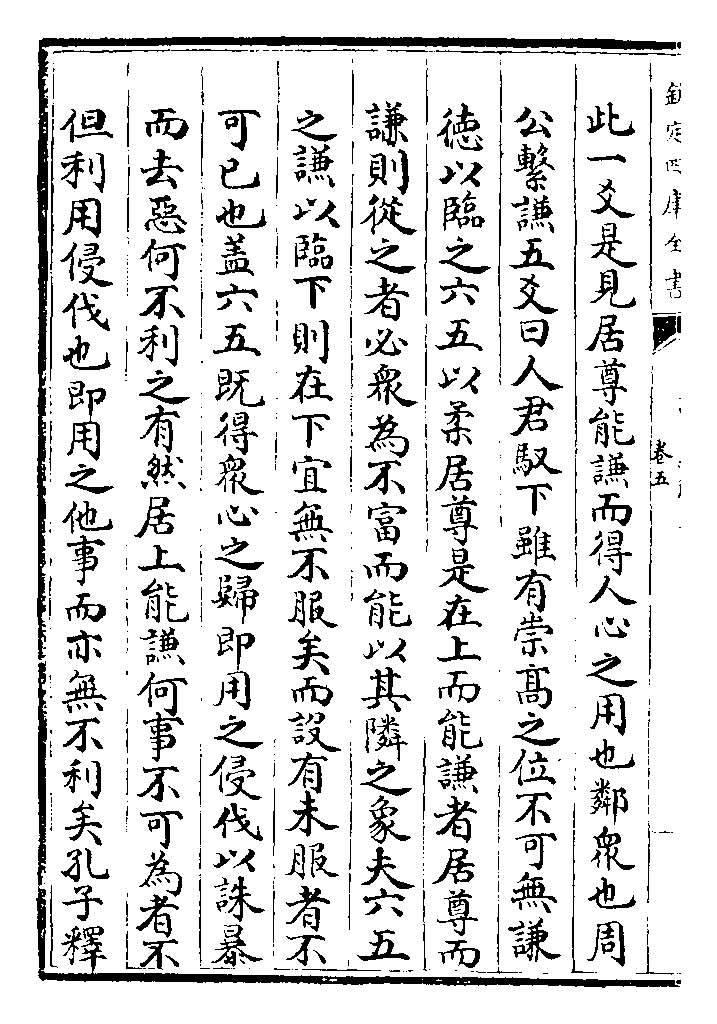 欽定四庫全書
卷五
此一爻是見居尊能謙而得人心之用也鄰衆也周
公繫謙五爻曰人君馭下雖有崇髙之位不可無謙
徳以臨之六五以柔居尊是在上而能謙者居尊而
謙則從之者必衆為不富而能以其隣之象夫六五
之謙以臨下則在下宜無不服矣而設有未服者不
可已也盖六五既得衆心之歸即用之侵伐以誅暴
而去惡何不利之有然居上能謙何事不可為者不
但利用侵伐也即用之他事而亦無不利矣孔子釋